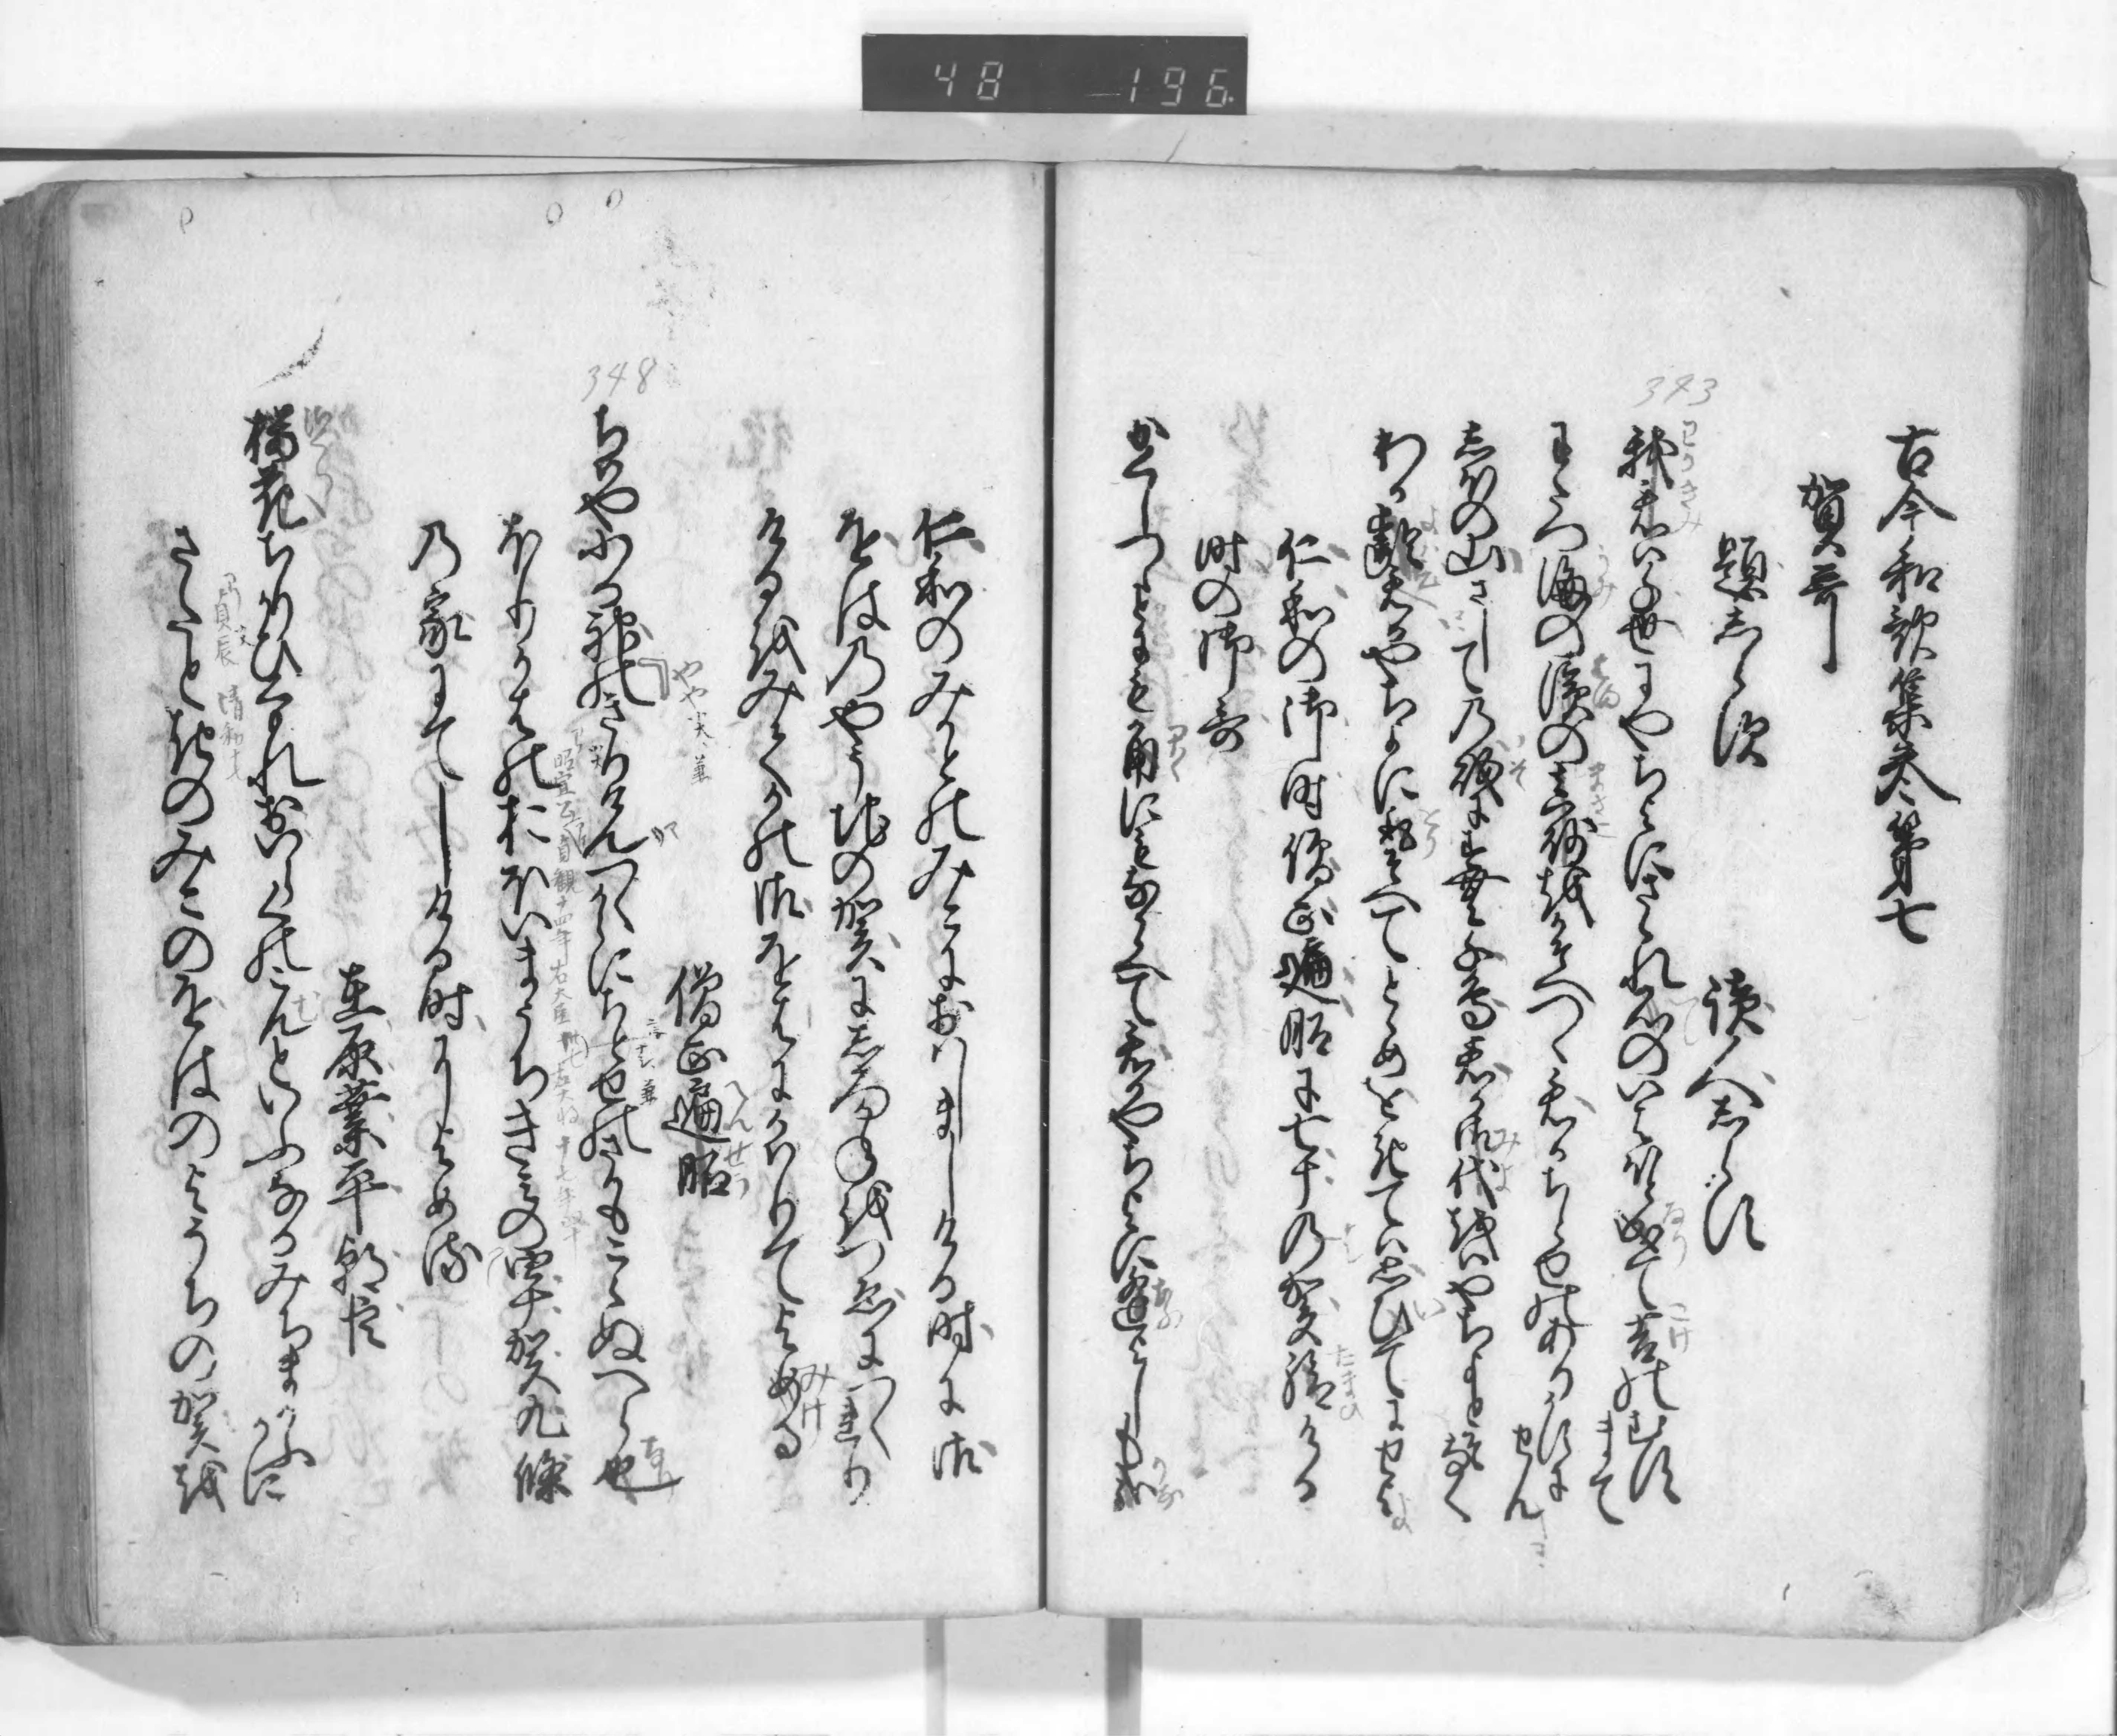 48 196
古今和歌集巻第七
賀哥
題しらす 讀人しらす
343
我君は千世にやちよにさゝれ石のいはほと成て苔のむすまて
わたつ海の濱の真砂をかそへつゝ君かちとせのありかすにせん
しほの山さしての礒にすむ千鳥君か御代をはやちよとそ鳴
わか齢君かやちよにとりそへてとゝめをきてはおもひてにせよ
仁和の御時僧正遍昭に七十の賀給ける
時の御哥
かくしつゝとにもかくにもなからへて君かやちよに逢よしもかな
仁和のみかとのみこにおはしましける時に御
をはのやそちの賀にしろかねをつゑにつくれり
けるをみてかの御をはにかはりてよめる
僧正遍昭
348
ちはやふる神のきりけんつくからにちとせのさかもこえぬへら也
ほりかはのおほいまうちきみの四十賀九條
の家にてしける時によめる
在原業平朝臣
櫻花ちりかひくもれおいらくのこんといふなるみちまかふかに
さたときのみこのをはのよそちの賀を